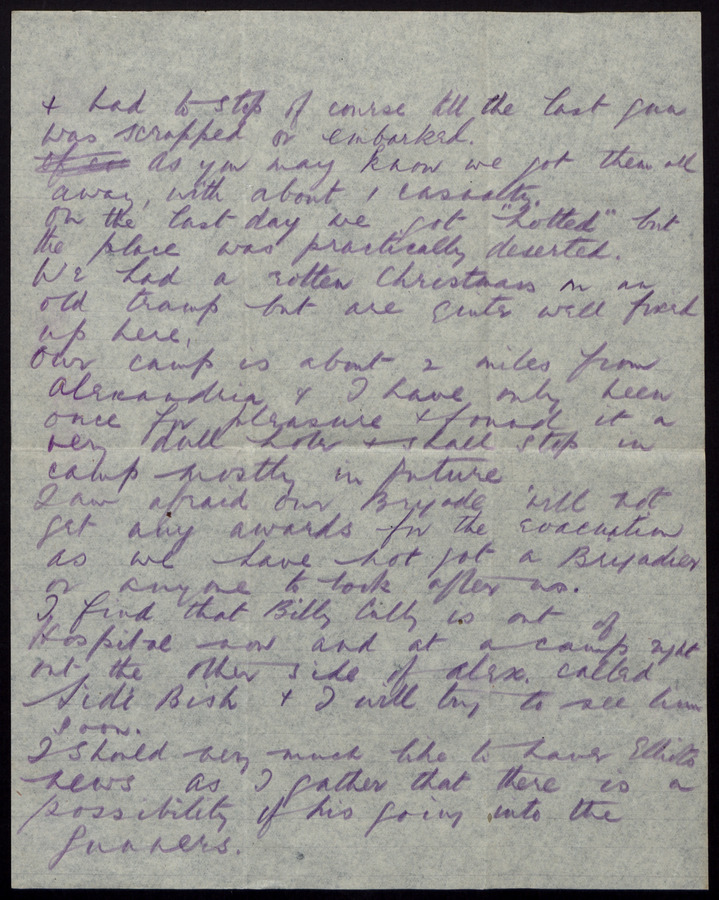 + had to stop of course till the last gun
was scrapped or embarked.
As you may know we got them all
away, with about 1 casualty.
On the last day we got "hotted" but
the place was practically deserted.
We had a rotten Christmas on an
old tramp but are quite well fixed
up here.
Our camp is about 2 miles from
Alexandria & I have only been
once for pleasure & found it a
very dull hole & shall stop in
camp mostly in future
I am afraid our Brigade will not
get any awards for the evacuation
as we have not got a Brigadier
or anyone to look after us.
I find that Billy is out of
Hospital now and at a camp right
out the other side of Alex. called
Sidi Bish & I will try to see him
soon.
I should very much like to have Elliots
news as I gather that there is a
possibility of his going into the
Gunners.